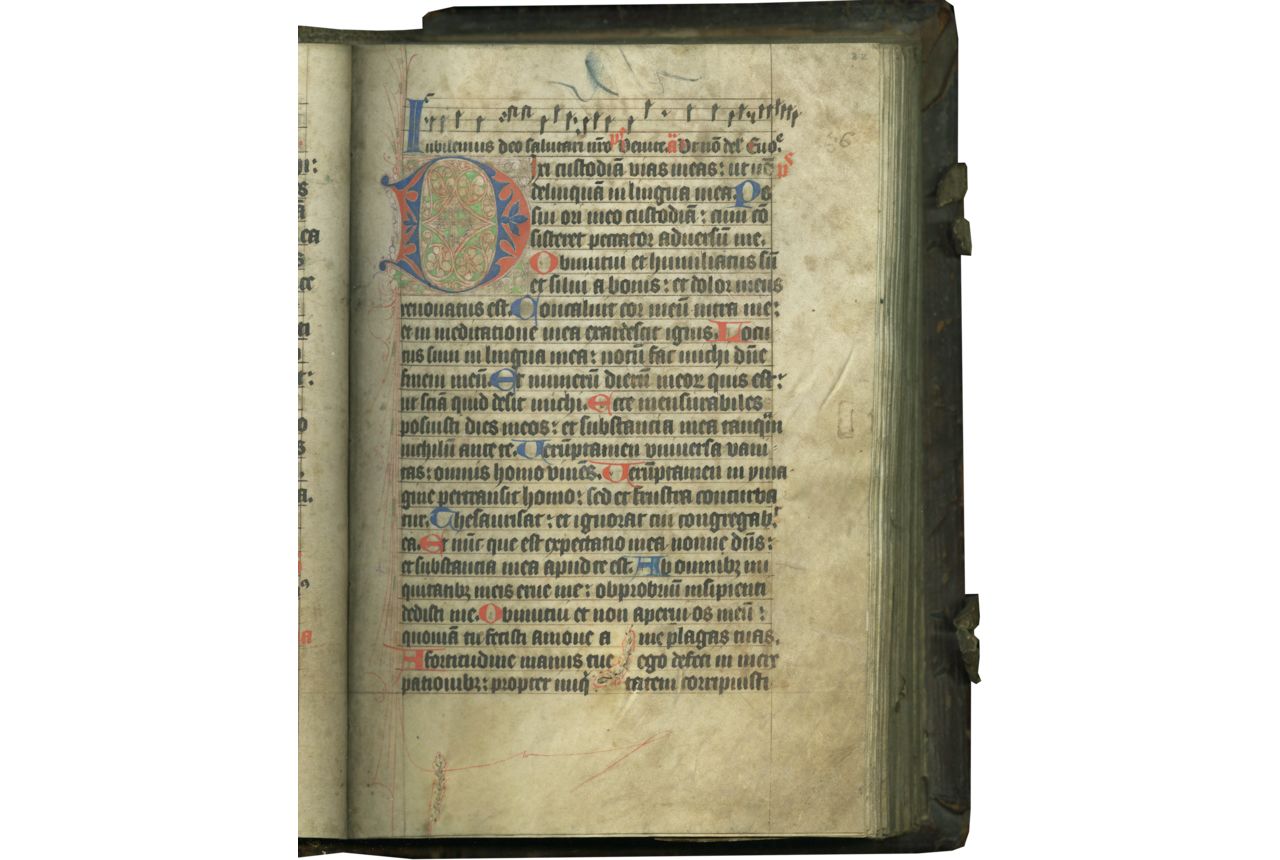 Iubilemus deo salutari nr̄o p̄s Venite. ā Vt nō del̄ Euoe
Dixi custodiā vias meas: ut nō p̄s
delinquā in lingua mea. Po
sui ori meo custodiā: cum cō
sisteret peccator adversū me.
Obmutui et humiliatus sū
et silui a bonis: et dolor meus
renovatus est. Concaluit cor meū intra me:
et in meditatione mea exardescit ignis. Locu
tus sum in lingua mea: notū fac michi dn̄e
finem meū. Et numerū dierū meoꝝ quis est:
ut sciā quid desit michi. Ecce mensurabiles
posuisti dies meos: et substancia mea tanqm̄
nichilū ante te. Verūptamen universa vani
tas: omnis homo vivēs. Verūptamen in yma
gine pertransit homo: sed et frustra conturba
tur. Thesaurisat: et ignorat cui congregabit
ea. Et nūc que est expectatio mea nonne dn̄s:
et substancia mea apud te est. Ab omnibꝫ ini
quitatibꝫ meis erue me: obprobriū insipienti
dedisti me. Obmutui et non aperui os meū:
quoniā tu fecisti amove a me plagas tuas.
A fortitudine manus tue ego defeci in incre
pationibꝫ: propter iniq̄ tatem corripuisti